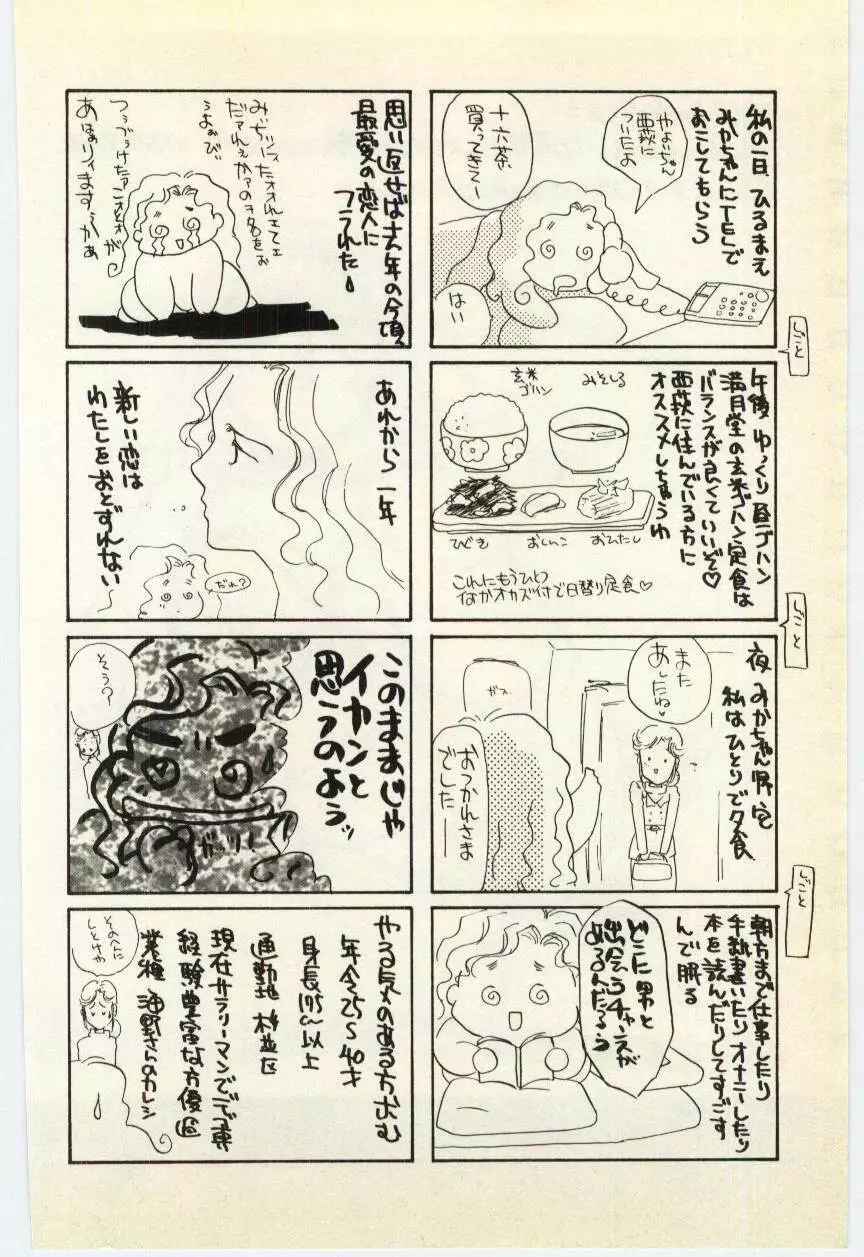 私の一日 ひるまえ
みかちゃんにTELで
おこしてもらう
やよいちゃん
西荻に
ついたよ
十六茶
買ってきてー
はい
しごと
午後 ゆっくり昼ゴハン
満月堂の玄米ゴハン定食は
バランスが良くていいぞ♡
西荻に住んでいる方に
オススメしちゃうわ
みそしる
玄米
ゴハン
おひたし
おしんこ
ひじき
これにもうひとつ
なんかオカズ付で日替り定食♡
しごと
夜 みかちゃん帰宅
私はひとりで夕食
また
あしたね♥
ガス
おつかれさま
でしたー
しごと
朝方まで仕事したり
手紙書いたりオナニーしたり
本を読んだりしてすごす
んで眠る
どこに男と
出会うチャンスが
あるんだろう
思い返せば去年の今頃、
最愛の恋人に
フラれた
あれから一年
新しい恋は
わたしをおとずれない〜
だれ?
このままじゃ
イカンと
思うのよぅッ
そう?
ガッ!!
やる気のある方求む
年令25〜40才
身長175cm以上
通勤地 杉並区
現在サラリーマンで
経験豊富な方優遇
業種 海野さんのカレシ
そのへんに
しとけや